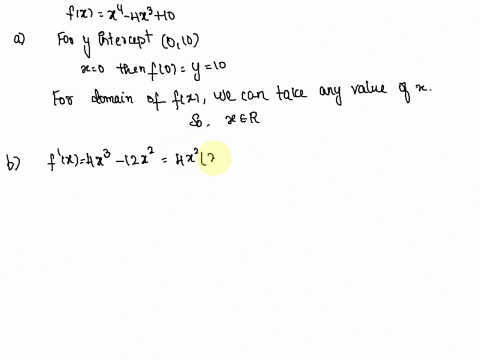 f(x) = x⁴-4x³+10
a) For y Intercept (0,10)
x=0 then f(0) = y = 10
For domain of f(x), we can take any value of x.
So, x∈R
b) f'(x)=4x³-12x² = 4x²(